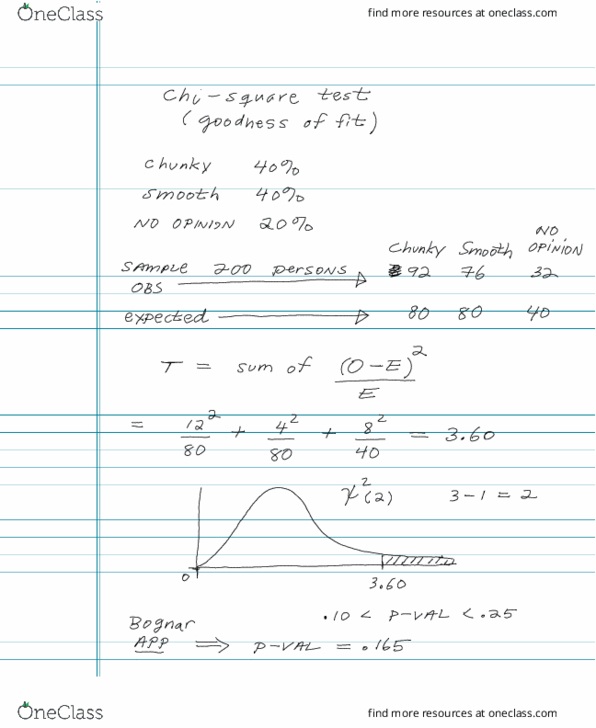 OneClass find more resources at oneclass.com
Chi-square test
(goodness of fit)
Chunky 40%
Smooth 40%
NO OPINION 20%
Chunky Smooth NO OPINION
SAMPLE 200 persons 92 76 32
OBS
expected 80 80 40
T = sum of (O-E)²/E
= 12²/80 + 4²/80 + 8²/40 = 3.60
χ²(2) 3-1 = 2
0 3.60
.10 < P-VAL < .25
Bognar
APP ⟹ P-VAL = .165
OneClass find more resources at oneclass.com